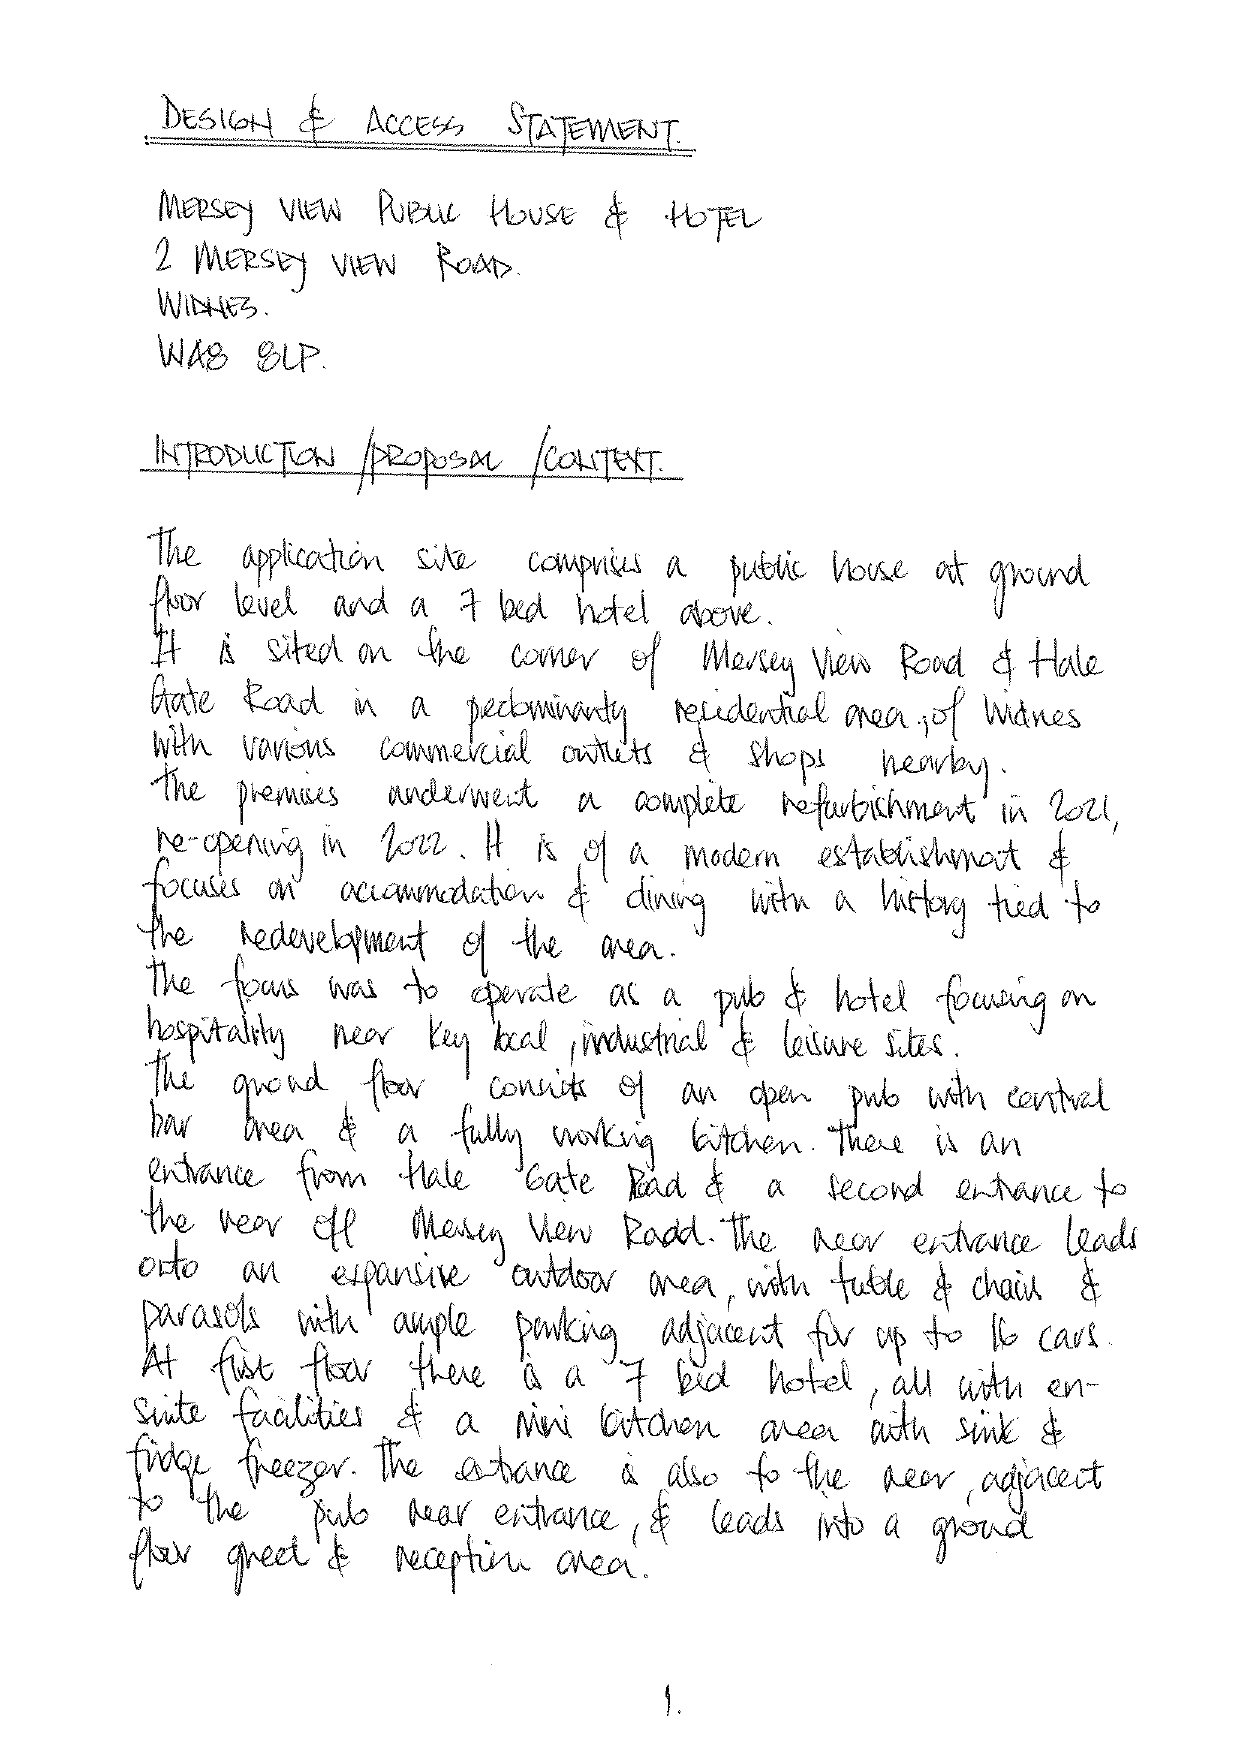 DESIGN & ACCESS STATEMENT.
MERSEY VIEW PUBLIC HOUSE & HOTEL
2 MERSEY VIEW ROAD.
WIDNES.
WA8 8LP.
INTRODUCTION / PROPOSAL / CONTEXT.
The application site comprises a public house at ground
floor level and a 7 bed hotel above.
It is sited on the corner of Mersey View Road & Hale
Gate Road in a pedominanty residential area, of Widnes
with various commercial outlets & shops nearby.
The premises underwent a complete refurbishment in 2021,
re-opening in 2022. It is of a modern establishment &
focuses on accommodation & dining with a history tied to
the redevelopment of the area.
The focus was to operate as a pub & hotel focusing on
hospitality near key local, industrial & leisure sites.
The ground floor consists of an open pub with central
bar area & a fully working kitchen. There is an
entrance from Hale Gate Road & a second entrance to
the rear off Mersey View Road. The rear entrance leads
onto an expansive outdoor area, with table & chairs &
parasols with ample parking adjacent for up to 16 cars.
At first floor there is a 7 bed hotel, all with en-
suite facilities & a mini kitchen area with sink &
fridge freezer. The entrance is also to the rear, adjacent
to the pub rear entrance, & leads into a ground
floor greet & reception area.
1.